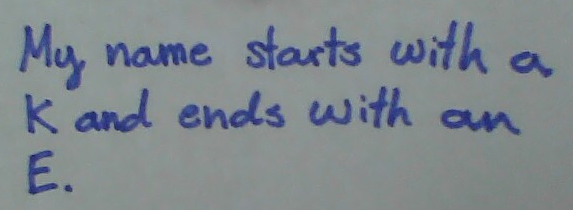 My name starts with a
K and ends with an
E.